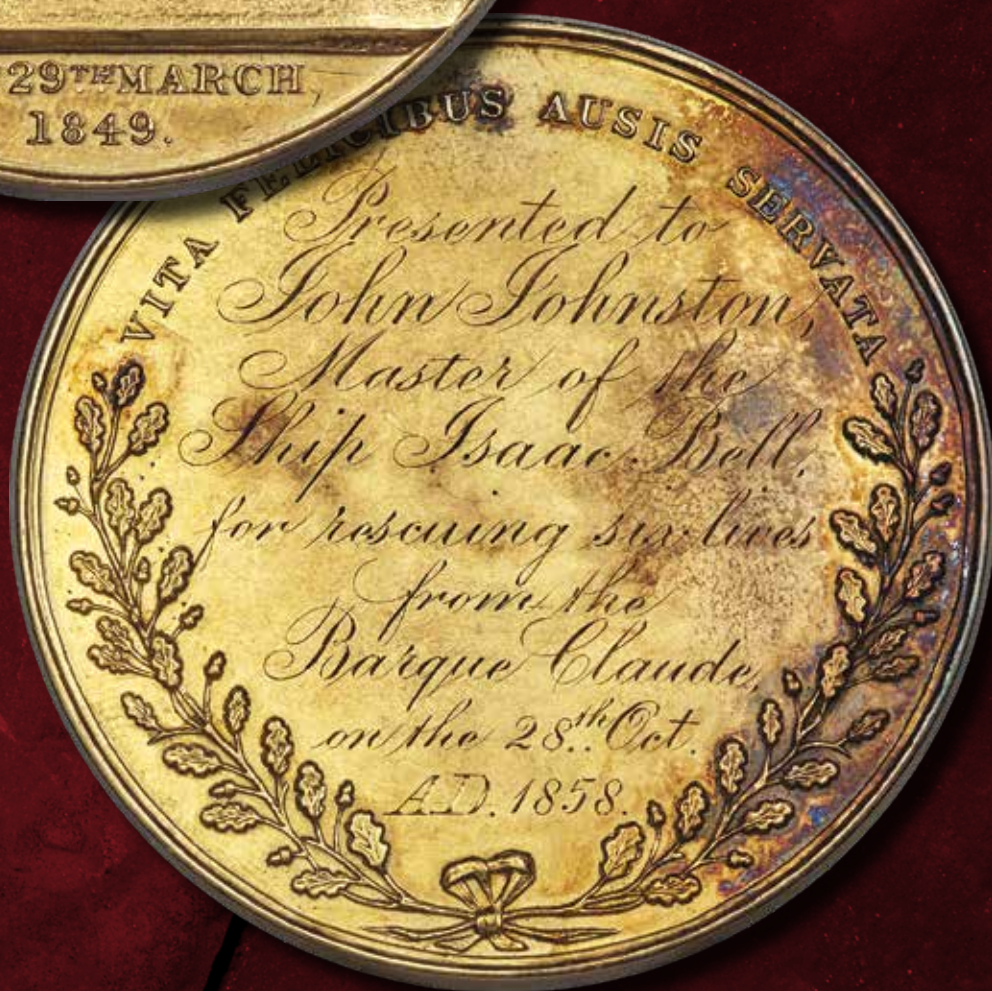 29TH MARCH,
1849.
VITA FELICIBUS AUSIS SERVATA
Presented to
John Johnston,
Master of the
Ship Isaac Bell,
for rescuing six lives
from the
Barque Claude,
on the 28th Oct.
A.D. 1858.